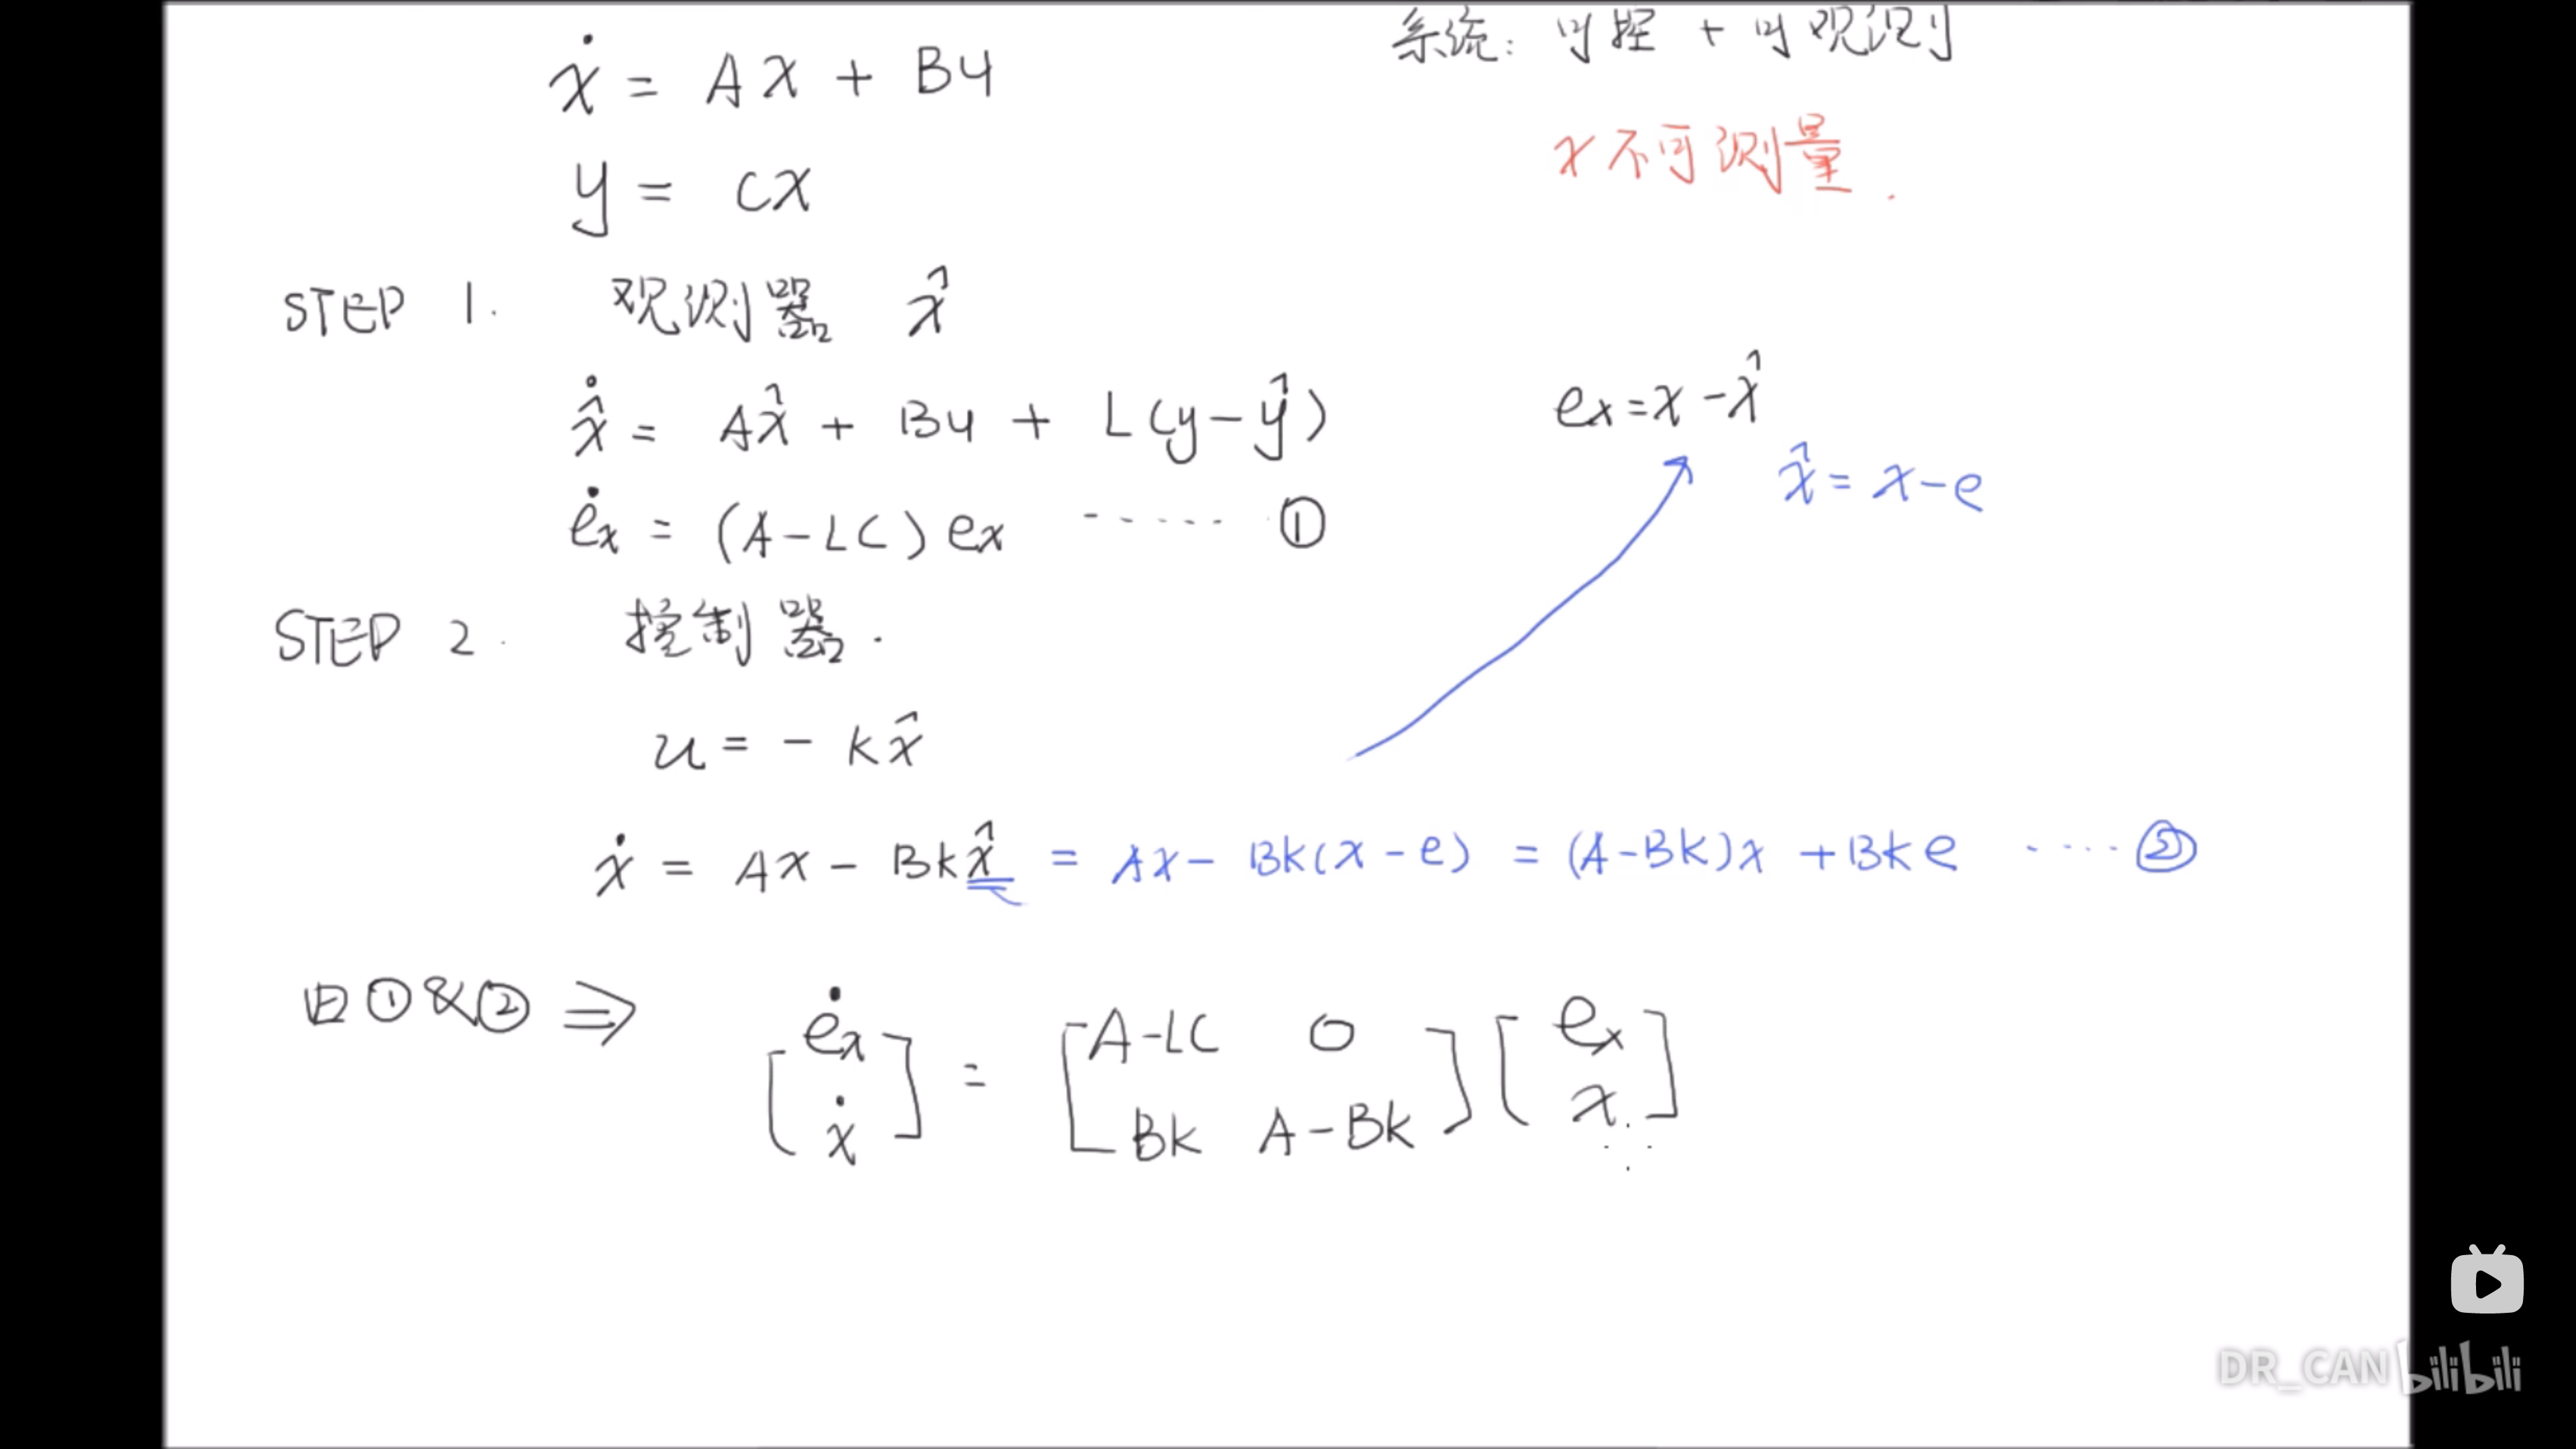 ẋ = Ax + Bu
系统: 可控 + 可观测
y = cx
x不可测量.
STEP 1. 观测器 x̂
x̂̇ = Ax̂ + Bu + L(y-ŷ)
eₓ = x - x̂
x̂ = x - e
ėₓ = (A-LC)eₓ ----- ①
STEP 2. 控制器.
u = - kx̂
ẋ = Ax - Bkx̂ = Ax - Bk(x - e) = (A-Bk)x + Bke ····· ②
由①&② ⇒ [ėₓ ẋ] = [A-LC 0 Bk A-Bk][eₓ x]
DR_CAN bilibili